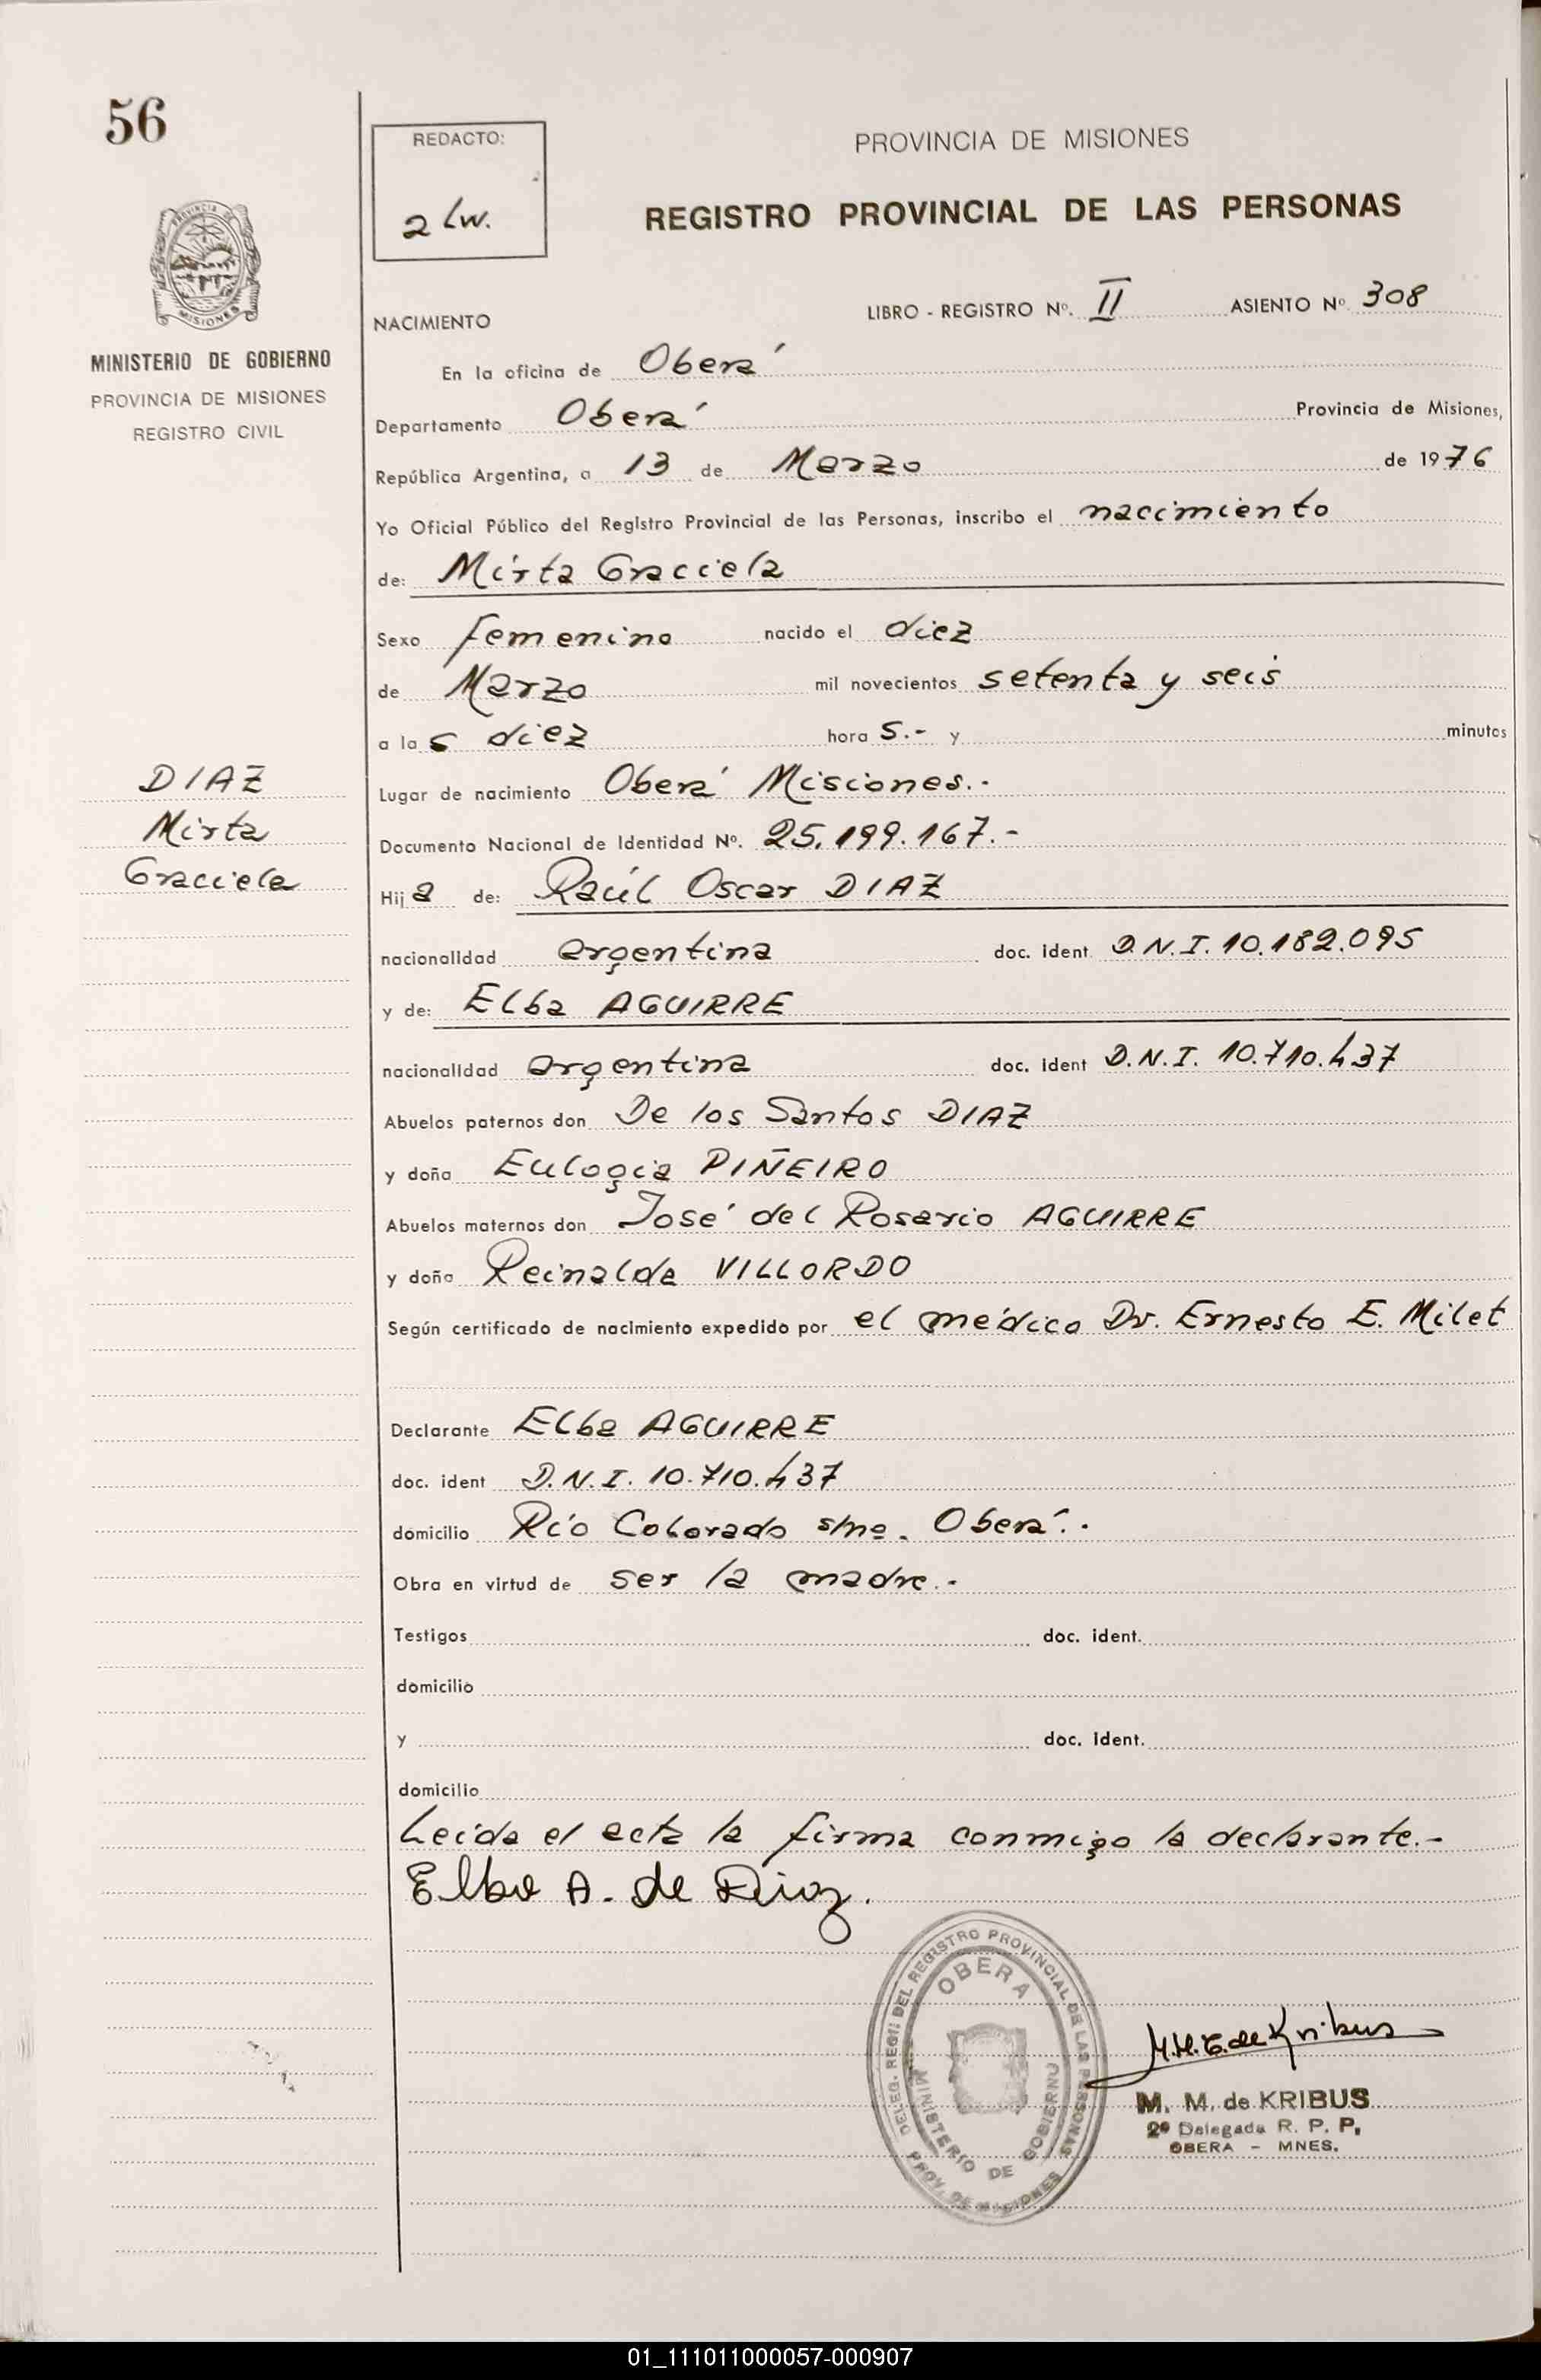 56
REDACTO:
2 Lw.
PROVINCIA DE MISIONES
REGISTRO PROVINCIAL DE LAS PERSONAS
MISIONES
MINISTERIO DE GOBIERNO
PROVINCIA DE MISIONES
REGISTRO CIVIL
NACIMIENTO
LIBRO - REGISTRO Nº. II ASIENTO Nº 308
En la oficina de Oberá
Departamento Oberá Provincia de Misiones,
República Argentina, a 13 de Marzo de 1976
Yo Oficial Público del Registro Provincial de las Personas, inscribo el nacimiento
de: Mirta Graciela
Sexo femenino nacido el diez
de Marzo mil novecientos setenta y seis
a la s diez hora s.- y minutos
Lugar de nacimiento Oberá Misiones.-
Documento Nacional de Identidad Nº. 25.199.167.-
DIAZ
Mirta
Graciela
Hija de: Raúl Oscar DIAZ
nacionalidad argentina doc. ident D.N.I. 10.182.095
y de: Elba AGUIRRE
nacionalidad argentina doc. ident D.N.I. 10.710.437
Abuelos paternos don De los Santos DIAZ
y doña Eulogia PIÑEIRO
Abuelos maternos don José del Rosario AGUIRRE
y doña Reinalda VILLORDO
Según certificado de nacimiento expedido por el médico Dr. Ernesto E. Milet
Declarante Elba AGUIRRE
doc. ident D.N.I. 10.710.437
domicilio Río Colorado s/no. Oberá.-
Obra en virtud de ser la madre.-
Testigos doc. ident.
domicilio
y doc. ident.
domicilio
Leída el acta la firma conmigo la declarante.-
Elba A. de Diaz.
DELEG. REGII DEL REGISTRO PROVINCIAL DE LAS PERSONAS
OBERA
MINISTERIO DE GOBIERNO
PROV. DE MISIONES
M.M. de Kribus
M. M. de KRIBUS
2º Delegada R. P. P.
OBERA - MNES.
01_111011000057-000907